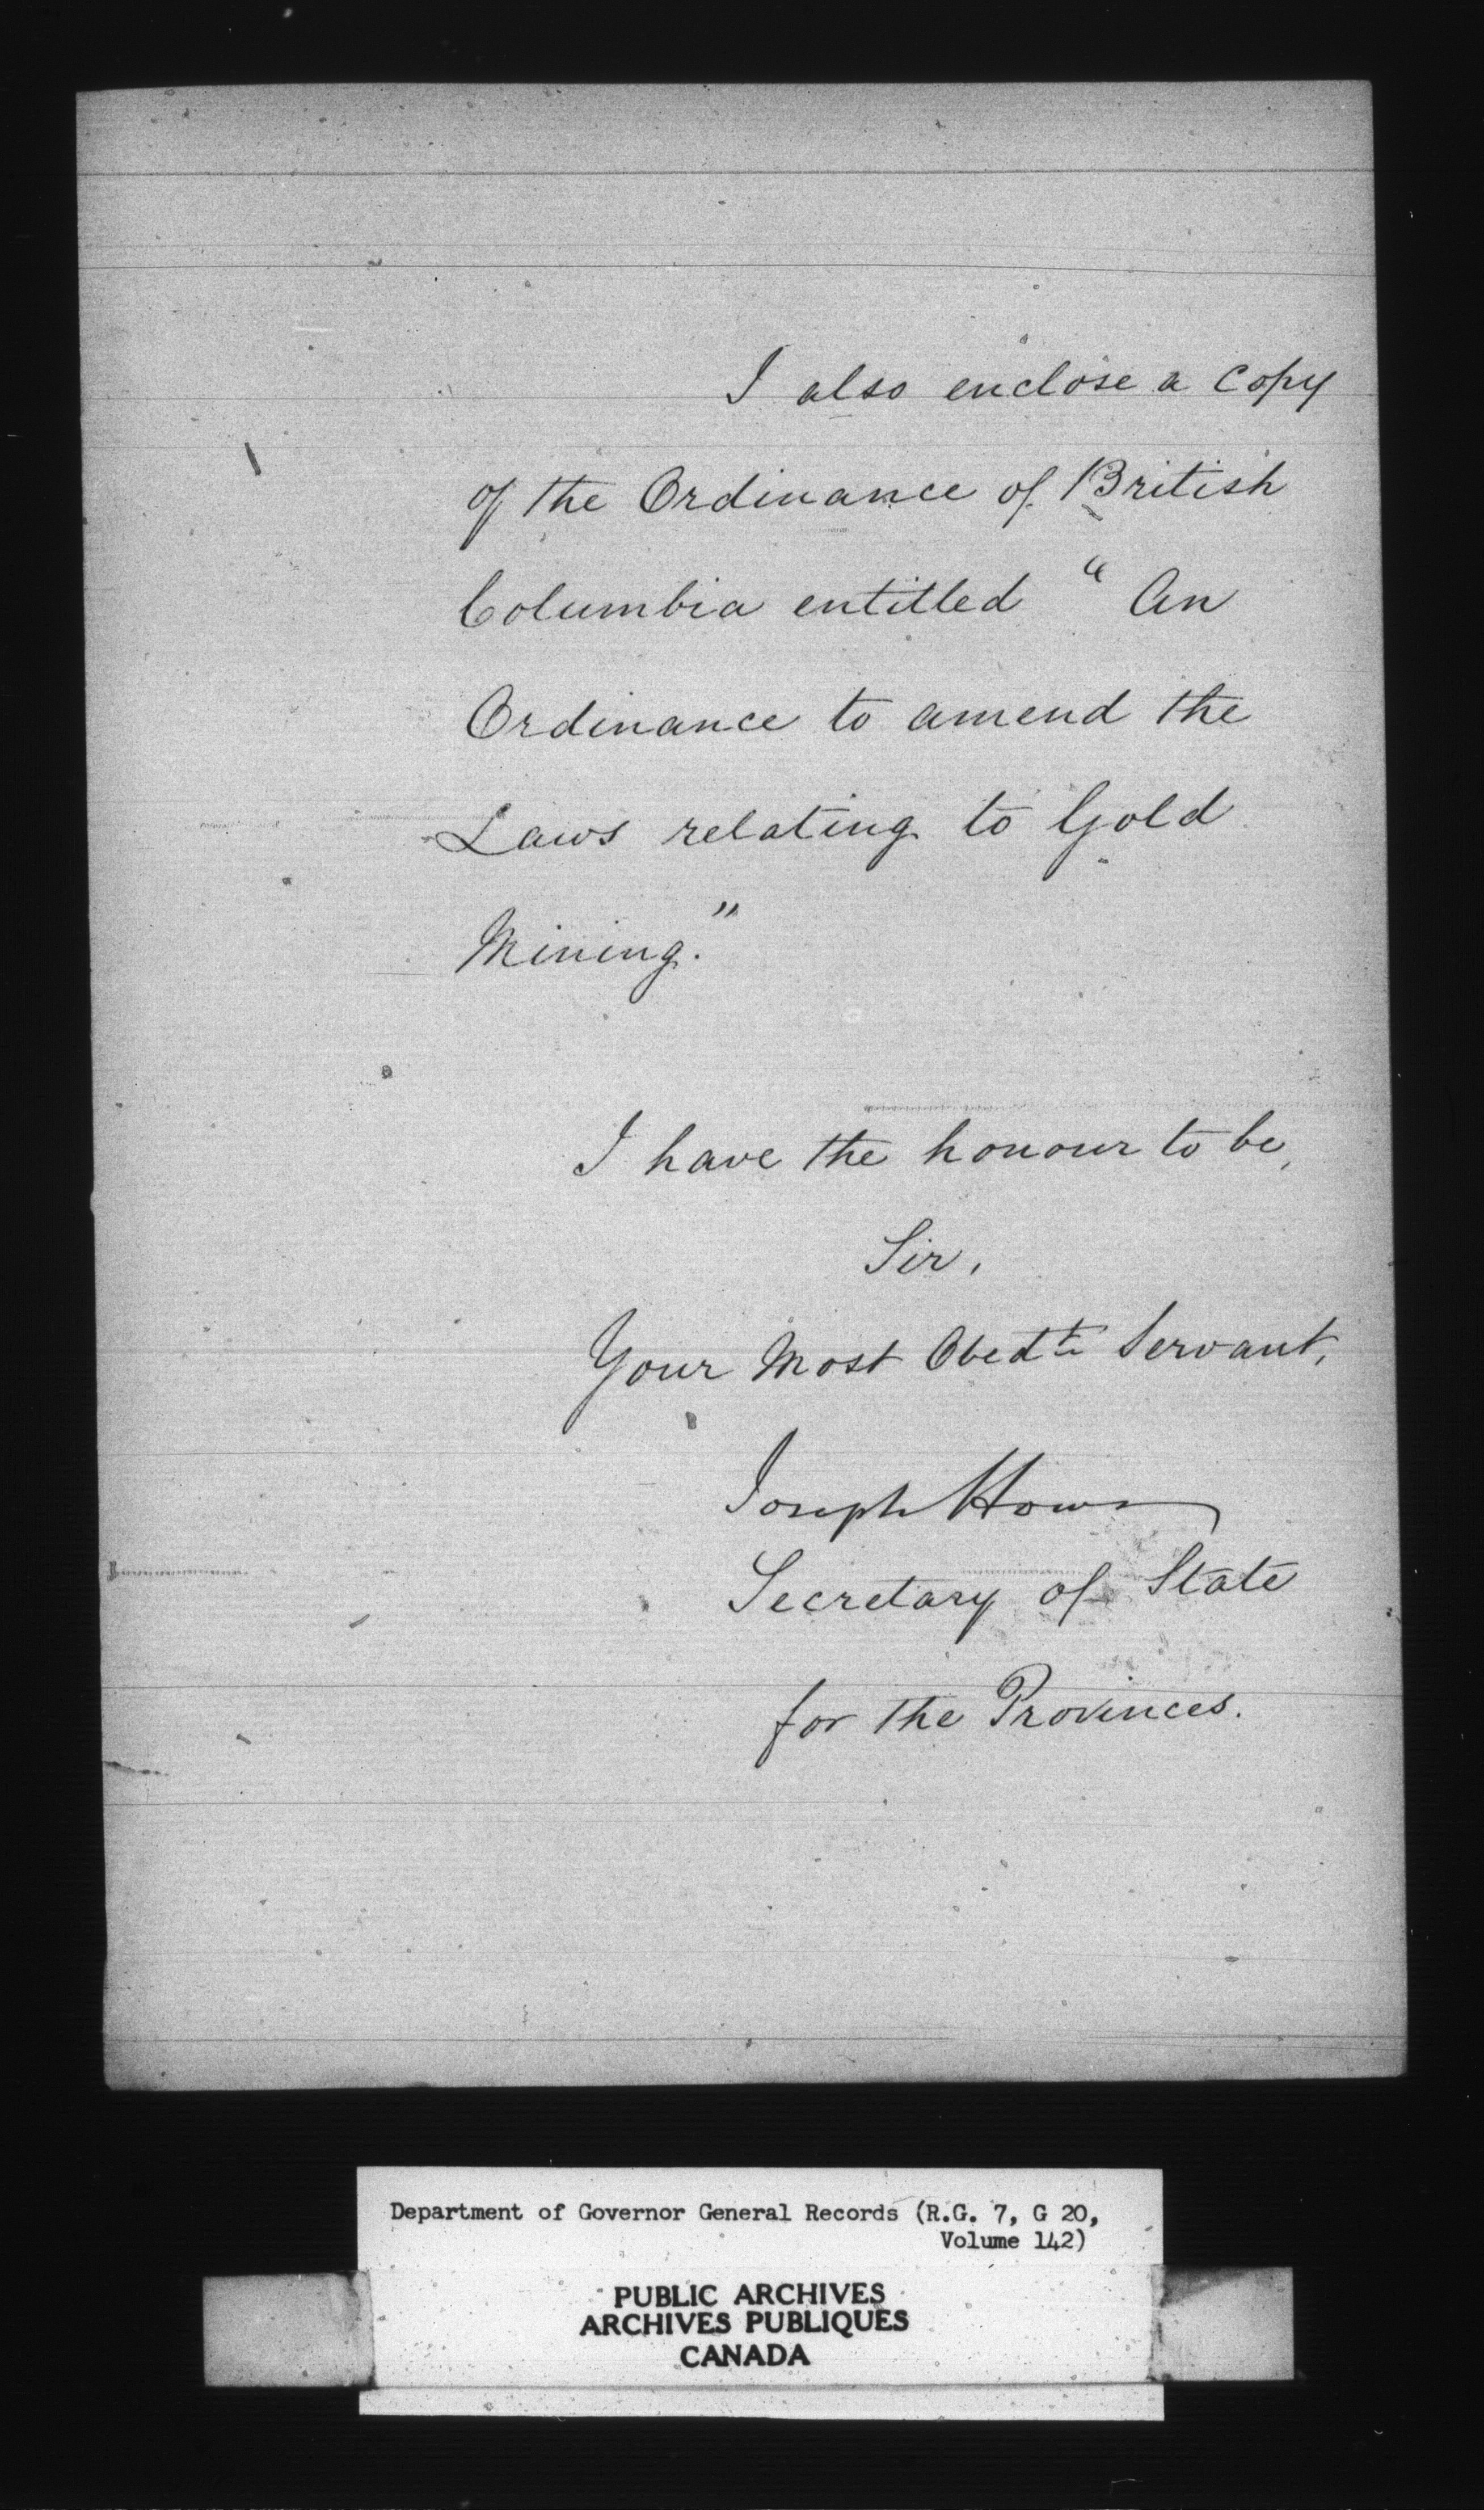 I also enclose a copy
of the Ordinance of British
Columbia entitled "An
Ordinance to amend the
Laws relating to Gold
Mining."
I have the honour to be,
Sir,
Your Most Obedt Servant,
Joseph Howe
Secretary of State
for the Provinces.
Department of Governor General Records (R.G. 7, G 20,
Volume 142)
PUBLIC ARCHIVES
ARCHIVES PUBLIQUES
CANADA